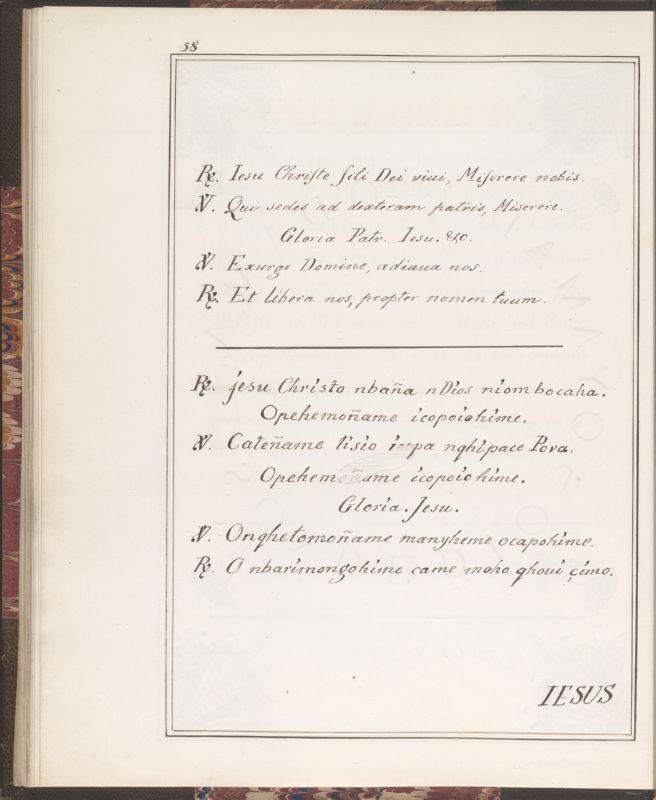 58
℟. Iesu Chriſte fili Dei viui, Miſerere nobis.
℣. Qui sedes ad dexteram patris, Miserere.
Gloria Patr. Iesu. &c.
℣. Exurge Domine, adiuua nos.
℟. Et libera nos, propter nomen tuum.
℟. jesu Christo nbaña nDios niombocaha.
Opehemoñame icopoiohime.
℣. Cateñame tisio i-pa nghipace Pova.
Opehemoñame icopoiohime.
Gloria. Jesu.
℣. Onghetomoñame manyheme ocapohime.
℟. O nbarimongohime came moho qhoui çimo.
IESUS